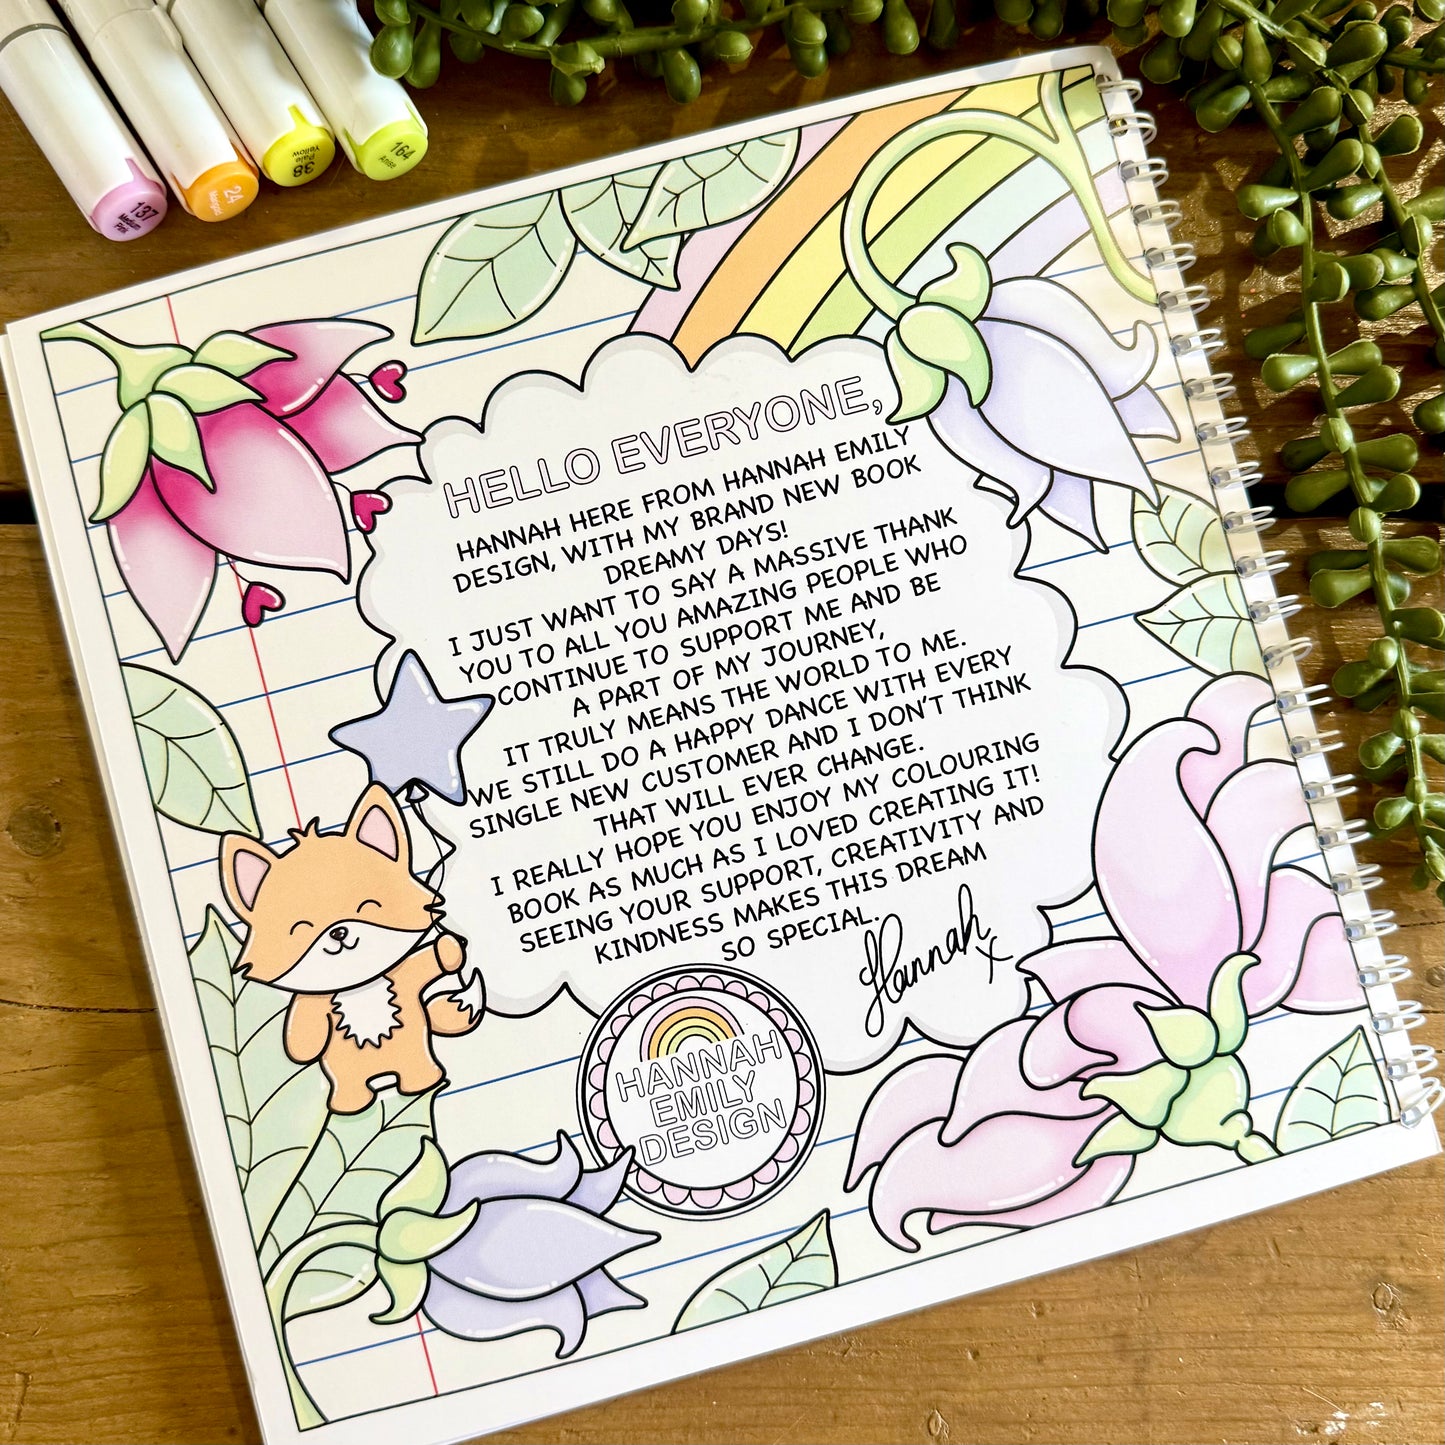 137
Medium
Pink
24
Marigold
38
Pale
Yellow
164
Anise
HELLO EVERYONE,
HANNAH HERE FROM HANNAH EMILY
DESIGN, WITH MY BRAND NEW BOOK
DREAMY DAYS!
I JUST WANT TO SAY A MASSIVE THANK
YOU TO ALL YOU AMAZING PEOPLE WHO
CONTINUE TO SUPPORT ME AND BE
A PART OF MY JOURNEY,
IT TRULY MEANS THE WORLD TO ME.
WE STILL DO A HAPPY DANCE WITH EVERY
SINGLE NEW CUSTOMER AND I DON'T THINK
THAT WILL EVER CHANGE.
I REALLY HOPE YOU ENJOY MY COLOURING
BOOK AS MUCH AS I LOVED CREATING IT!
SEEING YOUR SUPPORT, CREATIVITY AND
KINDNESS MAKES THIS DREAM
SO SPECIAL.
Hannah
x
HANNAH
EMILY
DESIGN